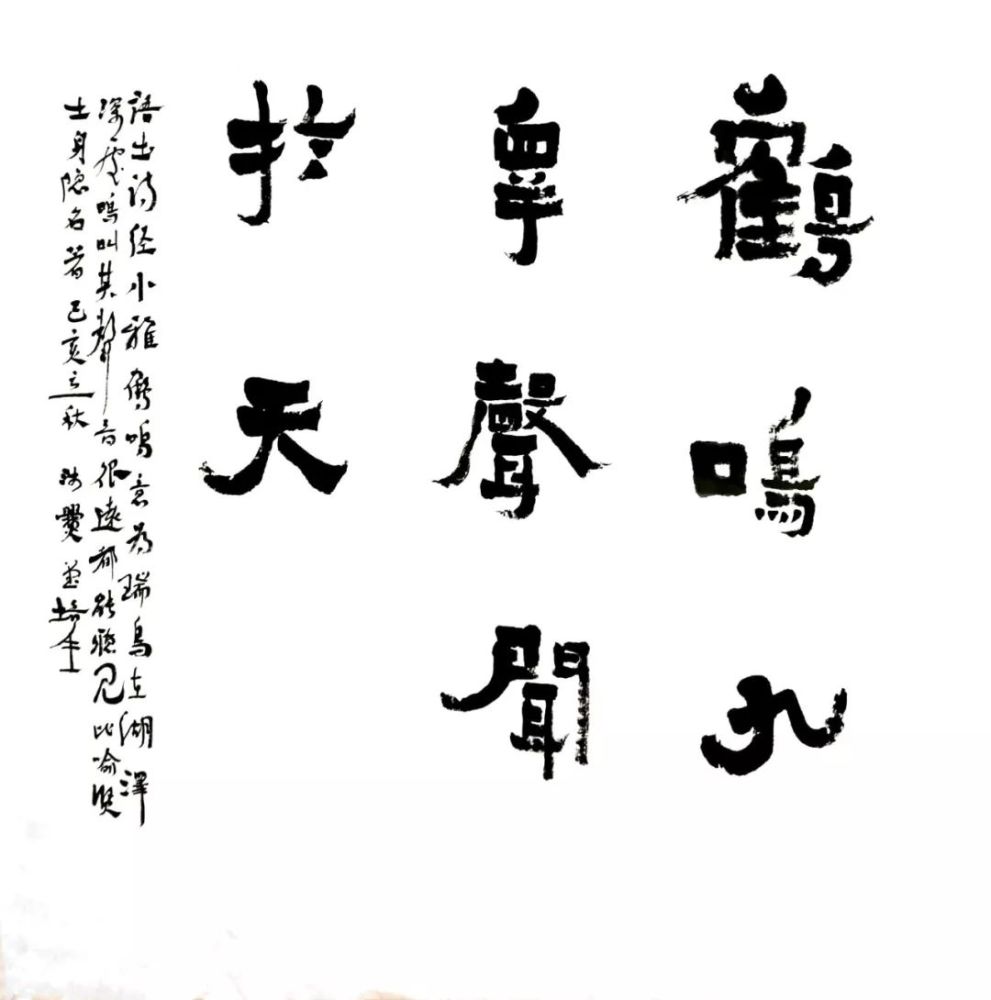 鶴鳴九
皋聲聞
扵天
語出诗经小雅鶴鳴意为瑞鳥在湖澤
深處鳴叫其聲音很遠都能聽见比喻賢
士身隐名著己亥立秋